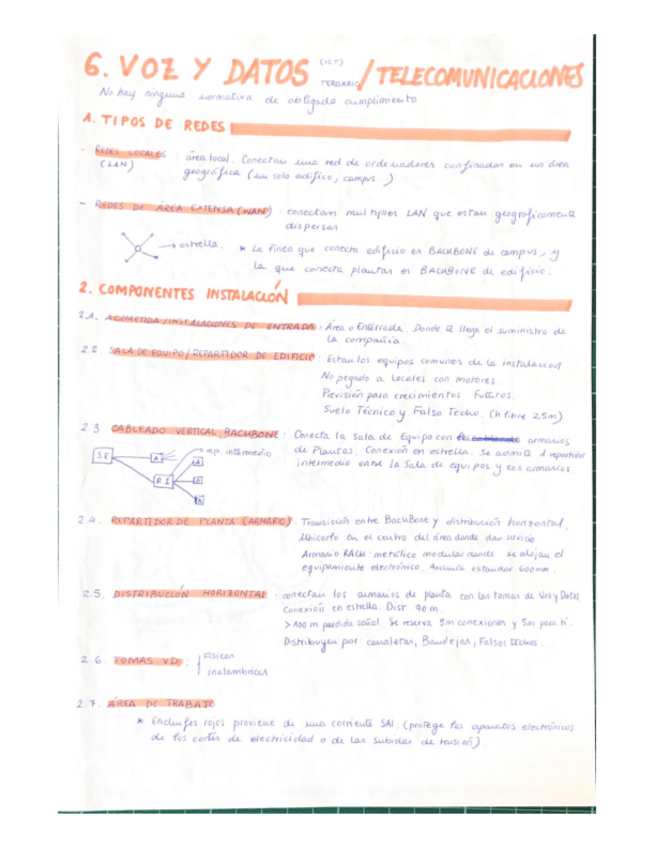 6. VOZ Y DATOS (ICT) TERCIARIO / TELECOMUNICACIONES
No hay ninguna normativa de obligado cumplimiento
1. TIPOS DE REDES
- REDES LOCALES : área local. Conectan una red de ordenadores confinados en un área
(LAN) geográfica (un solo edificio, campus...)
- REDES DE ÁREA EXTENSA (WAN) : conectan multiples LAN que estan geográficamente
dispersas
→ estrella. * La línea que conecta edificio es BACKBONE de campus, y
la que conecta plantas es BACKBONE de edificio.
2. COMPONENTES INSTALACIÓN
2.1. ACOMETIDA / INSTALACIONES DE ENTRADA : Área o Enterrada. Donde le llega el suministro de
la compañía.
2.2. SALA DE EQUIPO / REPARTIDOR DE EDIFICIO : Estan los equipos comunes de la instalacion
No pegado a locales con motores.
Previsión para crecimientos futuros.
Suelo Técnico y Falso Techo. (h libre 2,5m)
2.3 CABLEADO VERTICAL BACKBONE : Conecta la Sala de Equipo con armarios
de Plantas. Conexión en estrella. Se admite 1 repartidor
intermedio entre la Sala de equipos y los armarios
SE A → rep. intermedio
A
RI A
A
2.4. REPARTIDOR DE PLANTA (ARMARIO). Transición entre BackBone y distribución horizontal.
Ubicarlo en el centro del área donde dan servicio
Armario RACK: metálico modular donde se alojan el
equipamiento electrónico. Anchura estandar 600mm.
2.5. DISTRIBUCIÓN HORIZONTAL : conectan los armarios de planta con las tomas de Voz y Datos.
Conexión en estrella. Dist. 90m.
> 100 m perdida señal. Se reserva 5m conexiones y 5m para ti.
Distribuyen por: canaletas, Bandejas, Falsos techos...
2.6. TOMAS VD : físicas
inalambricas
2.7. ÁREA DE TRABAJO
* Enchufes rojos proviene de una corriente SAI. (protege los aparatos electrónicos
de los cortes de electricidad o de las subidas de tensión).